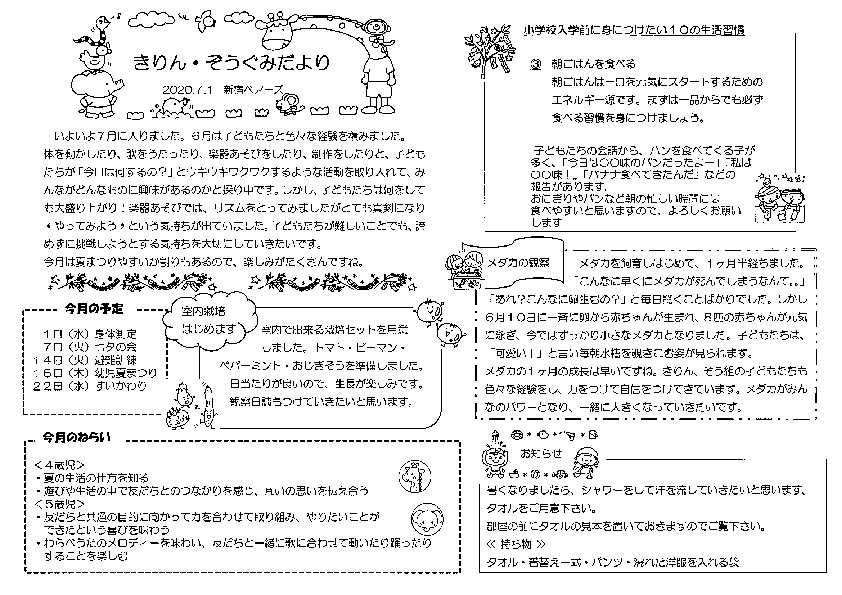 きりん・ぞうぐみだより
2020.7.1　新宿ベアーズ
いよいよ7月に入りました。6月は子どもたちと色々な経験を積みました。
体を動かしたり、歌をうたったり、楽器あそびをしたり、制作をしたりと、子ども
たちが「今日は何するの？」とウキウキワクワクするような活動を取り入れて、み
んながどんなものに興味があるのかと探り中です。しかし、子どもたちは何をして
も大盛り上がり！楽器あそびでは、リズムをとってみましたがとても真剣になり
・やってみよう・という気持ちが出ていました。子どもたちが難しいことでも、諦
めずに挑戦しようとする気持ちを大切にしていきたいです。
今月は夏まつりやすいか割りもあるので、楽しみがたくさんですね。
今月の予定
1日（水）身体測定
7日（火）七夕の会
14日（火）避難訓練
16日（木）幼児夏まつり
22日（水）すいかわり
室内栽培
はじめます
室内で出来る栽培セットを用意
しました。トマト・ピーマン・
ペパーミント・おじぎそうを準備しました。
日当たりが良いので、生長が楽しみです。
観察日誌もつけていきたいと思います。
今月のねらい
＜4歳児＞
・夏の生活の仕方を知る
・遊びや生活の中で友だちとのつながりを感じ、互いの思いを伝え合う
＜5歳児＞
・友だちと共通の目的に向かって力を合わせて取り組み、やりたいことが
できたという喜びを味わう
・わらべうたのメロディーを味わい、友だちと一緒に歌に合わせて動いたり踊ったり
することを楽しむ
小学校入学前に身につけたい10の生活習慣
③　朝ごはんを食べる
朝ごはんは一日を元気にスタートするための
エネルギー源です。まずは一品からでも必ず
食べる習慣を身につけましょう。
子どもたちの会話から、パンを食べてくる子が
多く、「今日は〇〇味のパンだったよー」「私は
〇〇味！」「バナナ食べてきたんだ」などの
報告があります。
おにぎりやパンなど朝の忙しい時間には
食べやすいと思いますので、よろしくお願い
します
メダカの観察
メダカを飼育しはじめて、1ヶ月半経ちました。
「こんなに早くにメダカが死んでしまうなんて。。」
「あれ？こんなに卵生むの？」と毎日驚くことばかりでした。しかし
6月10日に一斉に卵から赤ちゃんが生まれ、8匹の赤ちゃんが元気
に泳ぎ、今ではすっかり小さなメダカとなりました。子どもたちは、
「可愛い！」と言い毎朝水槽を覗きこむ姿が見られます。
メダカの1ヶ月の成長は早いですね。きりん、ぞう組の子どもたちも
色々な経験をし、力をつけて自信をつけてきています。メダカがみん
なのパワーとなり、一緒に大きくなっていきたいです。
お知らせ
暑くなりましたら、シャワーをして汗を流していきたいと思います、
タオルをご用意下さい。
部屋の前にタオルの見本を置いておきますのでご覧下さい。
≪ 持ち物 ≫
タオル・着替え一式・パンツ・濡れた洋服を入れる袋